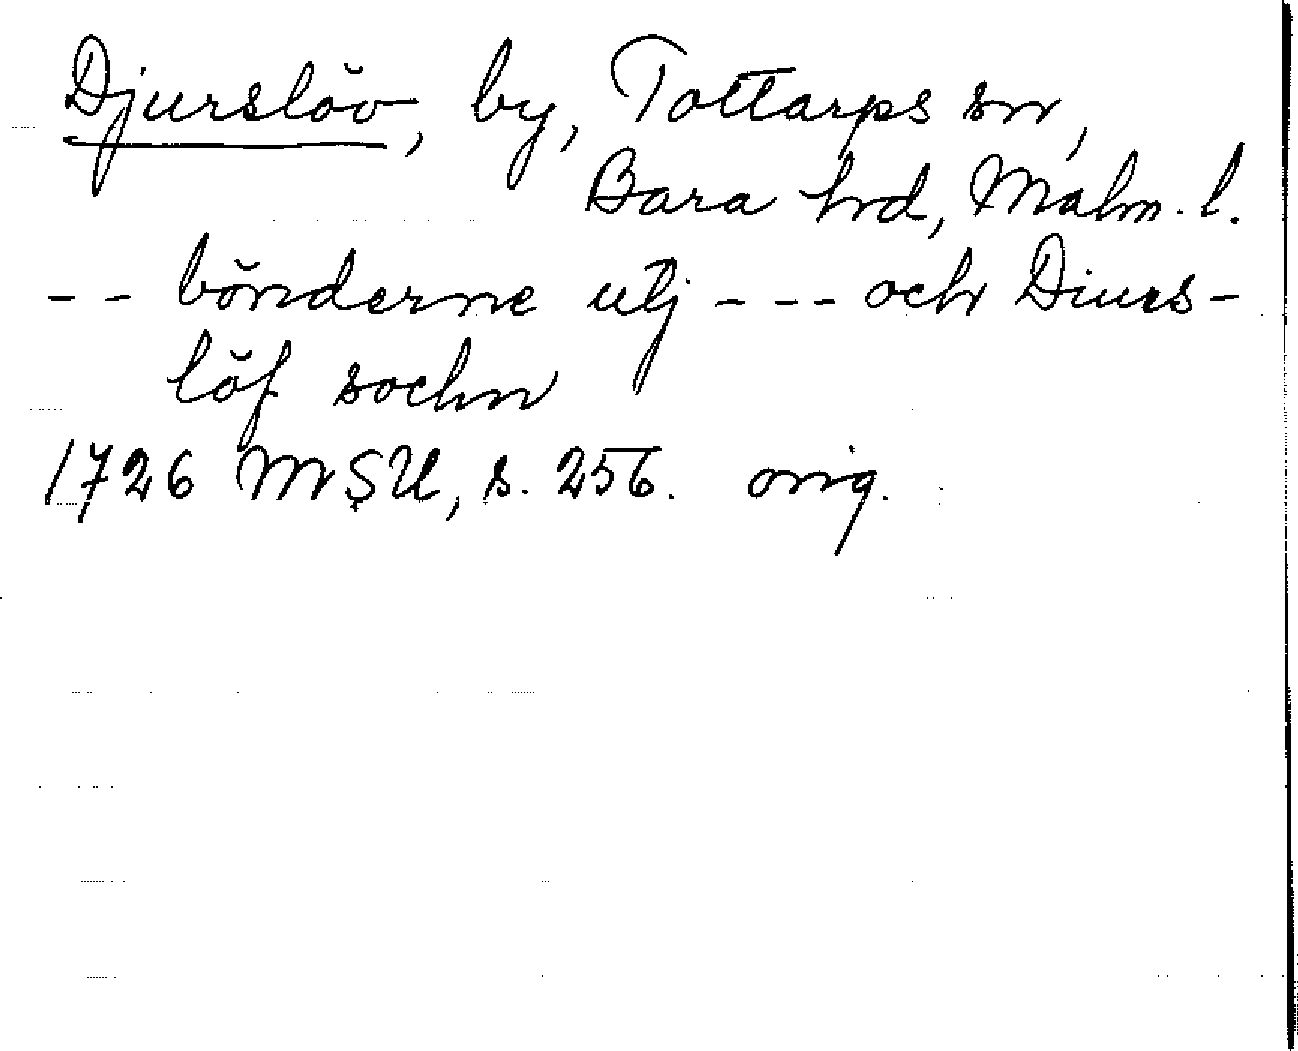 Djurslöv, by, Tottarps sn,
Bara hrd, Malm. l.
-- bönderne utj --- och Diurs-
löf sochn
1726 MSU, s. 256. orig.